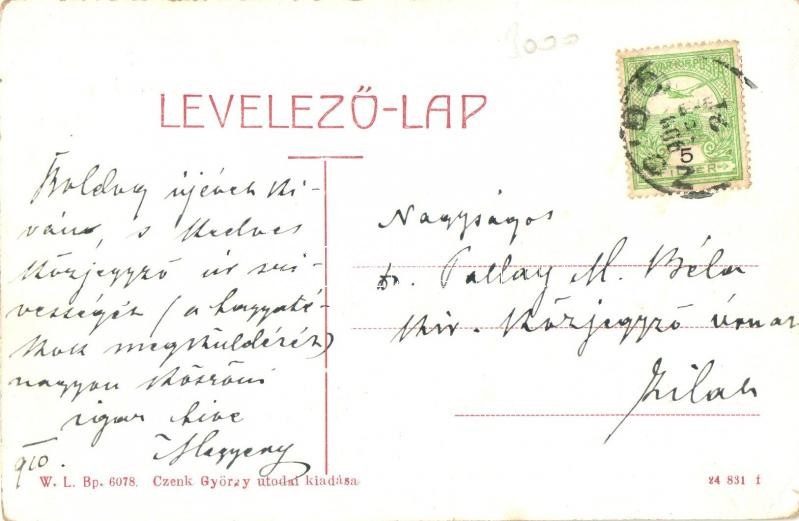 3000
LEVELEZŐ-LAP
Boldog újévet ki-
ván, s kedves
közjegyző úr szi-
vességét (a hagyaté-
kok megküldését)
nagyon köszöni
igaz hive
910.
Nagyságos
Dr. Pallay M. Béla
kir. közjegyző úrnak
Zilah
5
W. L. Bp. 6078. Czenk György utódai kiadása
24 831 f